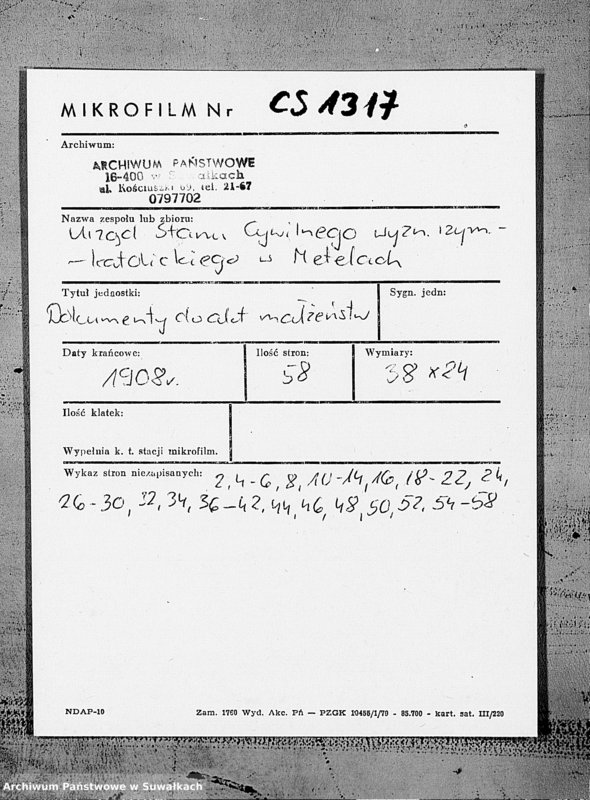 MIKROFILM Nr CS 1317
Archiwum:
ARCHIWUM PAŃSTWOWE
16-400 w Suwałkach
ul. Kościuszki 69, tel. 21-67
0797702
Nazwa zespołu lub zbioru:
Urząd Stanu Cywilnego wyzn. rzym.-
-katolickiego w Metelach
Tytuł jednostki: Sygn. jedn:
Dokumenty do akt małżeństw
Daty krańcowe: Ilość stron: Wymiary:
1908r. 58 38 x 24
Ilość klatek:
Wypełnia k. t. stacji mikrofilm.
Wykaz stron niezapisanych: 2, 4-6, 8, 10-14, 16, 18-22, 24,
26-30, 32, 34, 36-42, 44, 46, 48, 50, 52, 54-58
NDAP-10 Zam. 1760 Wyd. Akc. Pń — PZGK 10455/1/79 - 85.700 - kart. sat. III/220
Archiwum Państwowe w Suwałkach